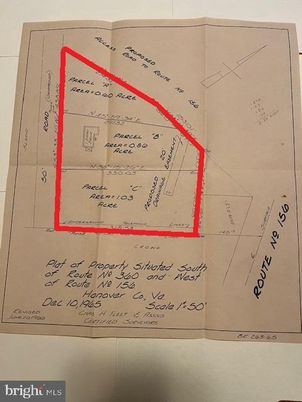 PROPOSED
ACCESS ROAD TO ROUTE Nº 156
PARCEL "A"
AREA=0.60 ACRE
ROAD
50'
PARCEL "B"
AREA=0.86
ACRE
20'
PROPOSED
DRAINAGE EASEMENT
PARCEL "C"
AREA=1.03
ACRE
ROUTE Nº 156
Plat of Property Situated South
of Route Nº 360 and West
of Route Nº 156
Hanover Co, Va.
Dec 10, 1965 Scale 1"=50'
REVISED
CHAS. H. FLEET & ASSOCS
CERTIFIED SURVEYORS
bright MLS